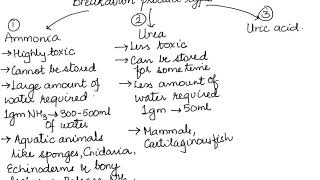 Breakdown product type
①
②
③
Ammonia
Urea
Uric acid.
→ Highly toxic
→ Less toxic
→ Cannot be stored
→ Can be stored
for some time
→ Large amount of
water required
→ Less amount of
water required
1gm NH₃ → 300-500ml
of water
1gm → 50ml
→ Aquatic animals
like sponges, Cnidaria,
Echinoderms & bony
→ Mammals,
Cartilaginous fish